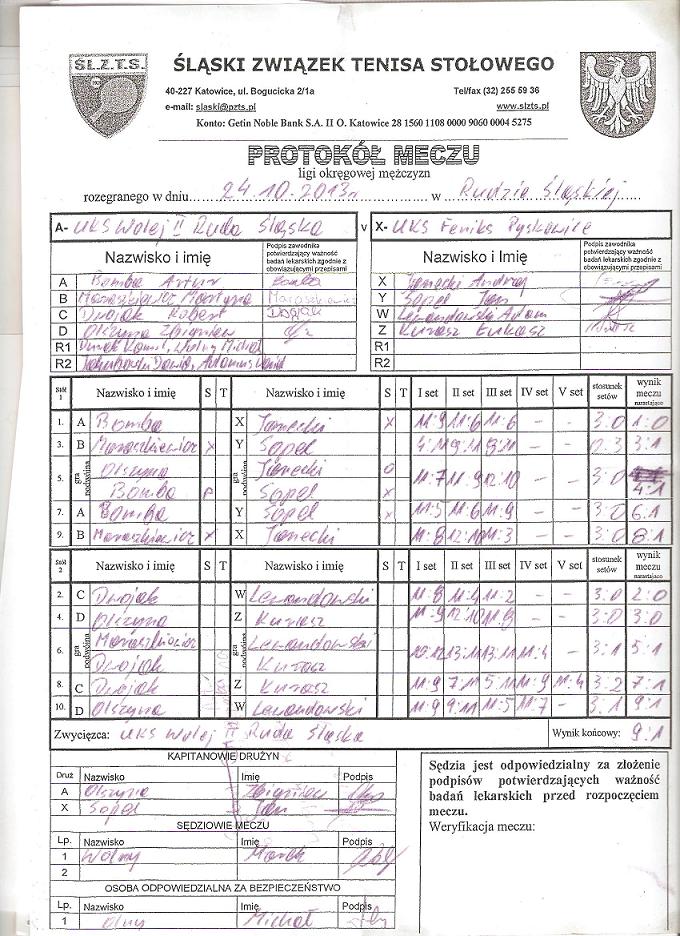 ŚL.Z.T.S.
ŚLĄSKI ZWIĄZEK TENISA STOŁOWEGO
40-227 Katowice, ul. Bogucicka 2/1a Tel/fax (32) 255 59 36
e-mail: slaski@pzts.pl www.slzts.pl
Konto: Getin Noble Bank S.A. II O. Katowice 28 1560 1108 0000 9060 0004 5275
PROTOKÓŁ MECZU
ligi okręgowej mężczyzn
rozegranego w dniu 24.10.2013r w Rudzie Śląskiej
A- UKS Wolej II Ruda Śląska v X- UKS Feniks Pyskowice
Nazwisko i imię Podpis zawodnika potwierdzający ważność badań lekarskich zgodnie z obowiązującymi przepisami Nazwisko i imię Podpis zawodnika potwierdzający ważność badań lekarskich zgodnie z obowiązującymi przepisami
A Bomba Artur Bomba X Janecki Andrzej
B Maraszkiewicz Martyna Maraszkiewicz Y Sopel Jan
C Dwojak Robert Dwojak W Lewandowski Adam
D Olszyna Zbigniew Z Kurasz Łukasz
R1 Michał R1
R2 R2
Stół 1 Nazwisko i imię S T Nazwisko i imię S T I set II set III set IV set V set stosunek setów wynik meczu narastająco
1. A Bomba X Janecki x 11:9 11:6 11:6 - - 3:0 1:0
3. B Maraszkiewicz x Y Sopel - - 0:3 3:1
5. gra podwójna Olszyna Bomba gra podwójna Janecki Sopel x 11:7 11:9 12:10 - - 3:0 4:1
7. A Bomba Y Sopel x 11:5 11:6 11:9 - - 3:0 6:1
9. B Maraszkiewicz x X Janecki 11:8 12:10 11:3 - - 3:0 8:1
Stół 2 Nazwisko i imię S T Nazwisko i imię S T I set II set III set IV set V set stosunek setów wynik meczu narastająco
2. C Dwojak W Lewandowski 11:8 11:4 11:2 - - 3:0 2:0
4. D Olszyna Z Kurasz 11:9 12:10 11:8 - - 3:0 3:0
6. gra podwójna Maraszkiewicz Dwojak gra podwójna Lewandowski Kurasz 10:12 13:11 13:11 11:4 - 3:1 5:1
8. C Dwojak Z Kurasz 11:9 7:11 5:11 11:9 11:4 3:2 7:1
10. D Olszyna W Lewandowski 11:9 9:11 11:5 11:7 - 3:1 9:1
Zwycięzca: UKS Wolej II Ruda Śląska Wynik końcowy: 9:1
KAPITANOWIE DRUŻYN
Druż Nazwisko Imię Podpis
A Olszyna Zbigniew
X Sopel Jan
SĘDZIOWIE MECZU
Lp. Nazwisko Imię Podpis
1 Wolny Marek
2
OSOBA ODPOWIEDZIALNA ZA BEZPIECZEŃSTWO
Lp. Nazwisko Imię Podpis
1 Michał
Sędzia jest odpowiedzialny za złożenie
podpisów potwierdzających ważność
badań lekarskich przed rozpoczęciem
meczu.
Weryfikacja meczu: